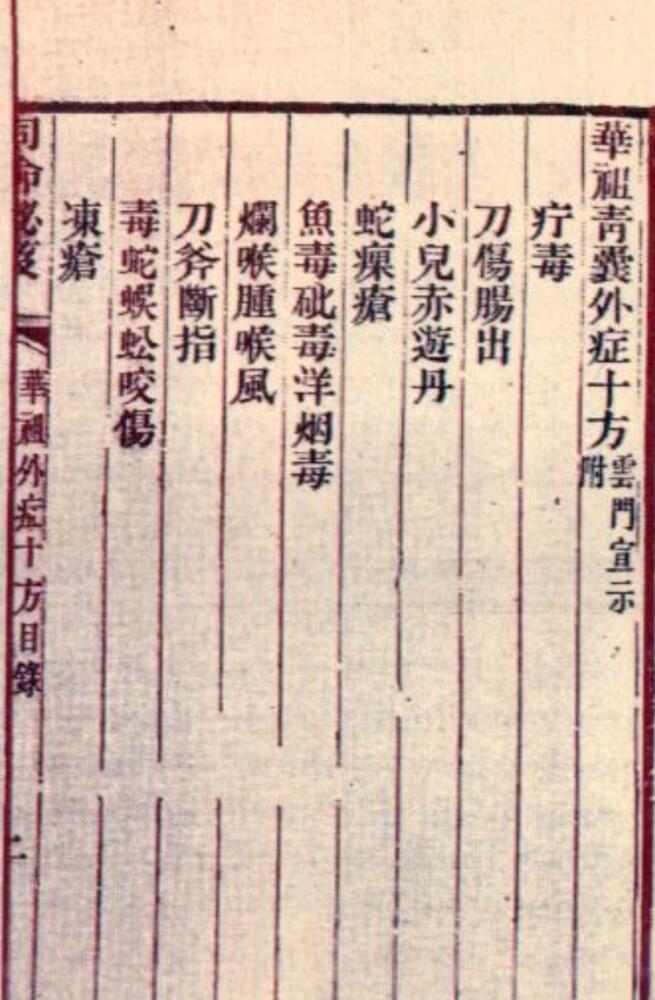 華祖青囊外症十方
雲門宣示
附
疔毒
刀傷腸出
小兒赤遊丹
蛇瘡
魚毒砒毒洋烟毒
爛喉腫喉風
刀斧斷指
毒蛇蜈蚣咬傷
凍瘡
命
華祖外症十方目錄